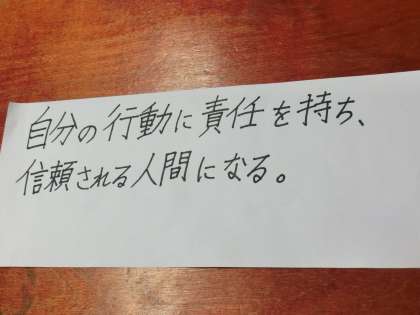 自分の行動に責任を持ち、
信頼される人間になる。